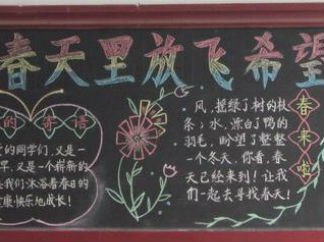 春天里放飞希望
的寄语
的同学们,又是一
早,又是一个崭新的
我们沐浴着春日的
健康·快乐地成长!
风,摇绿了树的枝
条;水,漂白了鸭的
羽毛,盼望了整整
一个冬天,你看,春
天已经来到!让我
们一起去寻找春天!
春来啦